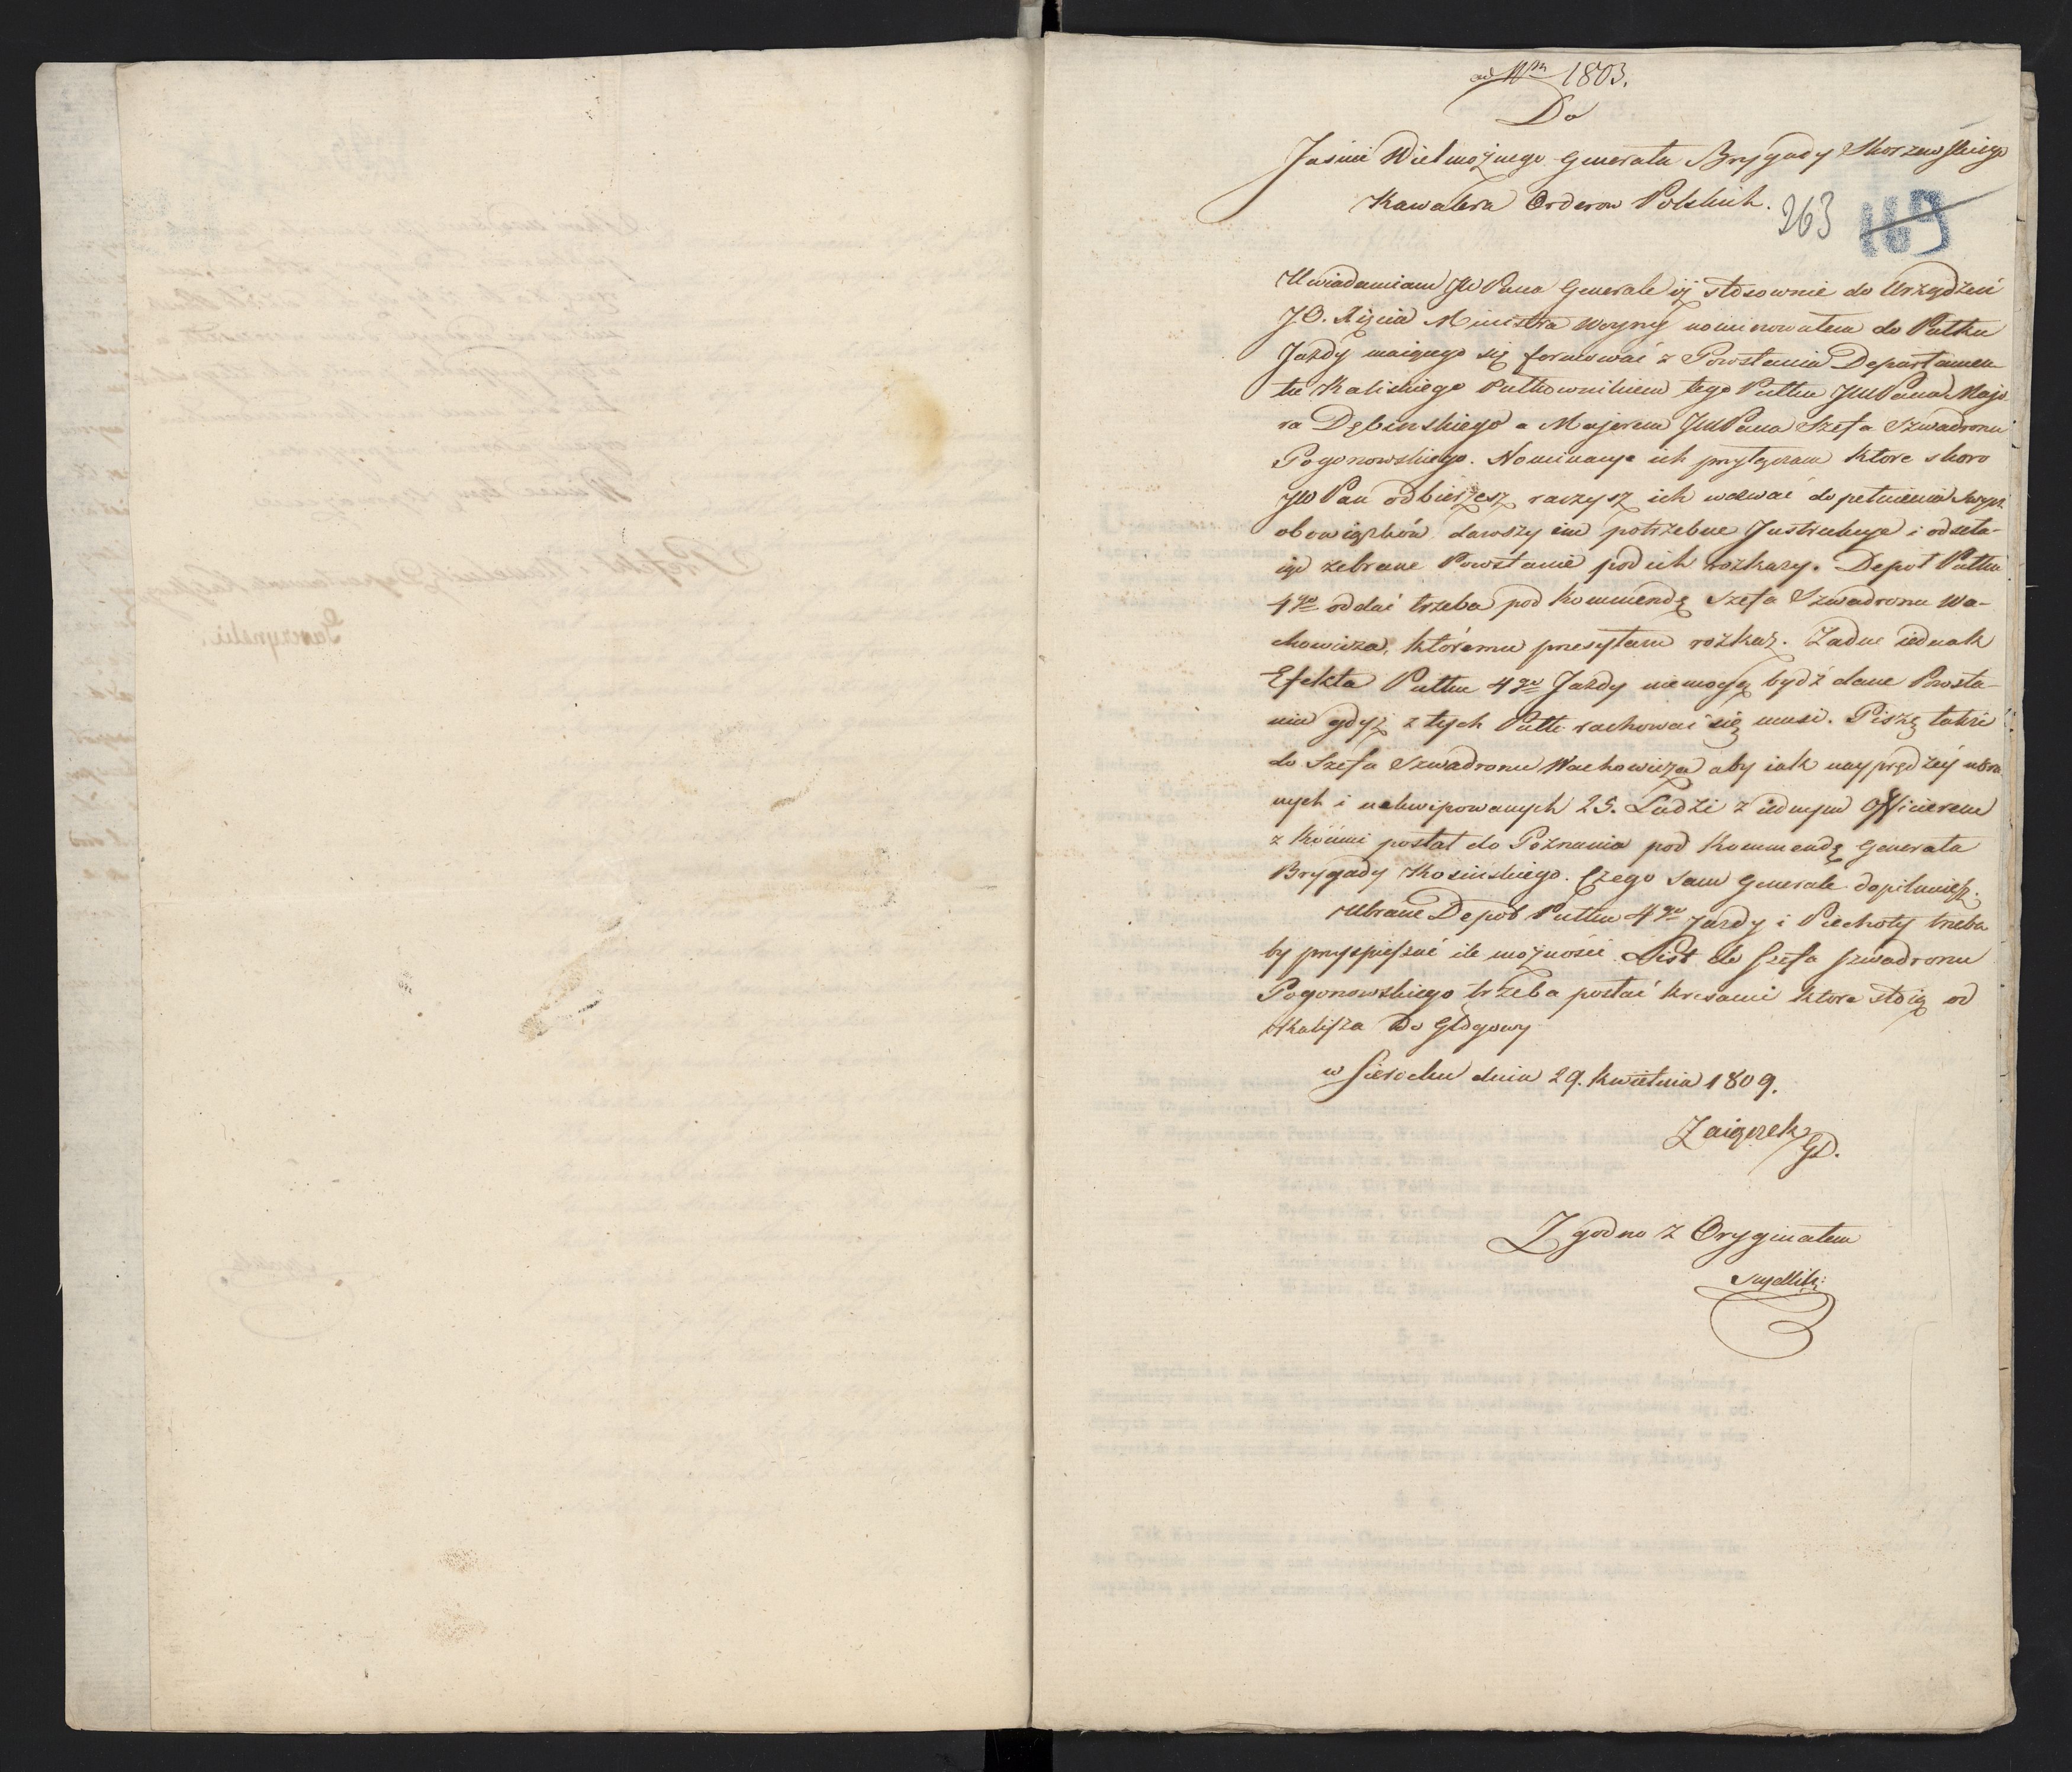 ad Nrm 1803.
Do
Jaśnie Wielmożnego Generała Brygady Skorzewskiego
Kawalera Orderow Polskich.
263 163
Uwiadamiam JW Pana Generale iż stosownie do Urządzeń
JO. Xięcia Ministra Woyny nominowałem do Pułku
Jazdy maiącego się formować z Powstania Departamen-
tu Kaliskiego Pułkownikiem tego Pułku JW Pana Majo-
ra Dębinskiego a Majorem JW Pana Szefa Szwadronu
Pogonowskiego. Nominacye ich przyłączam które skoro
JW Pan odbierzesz raczysz ich wezwać do pełnienia swych
obowiązków dawszy im potrzebne Instrukcye i odsela-
iąc zebrane Powstanie pod ich rozkazy. Depot Pułku
4go oddać trzeba pod Kommendę Szefa Szwadronu Wa-
chowicza, któremu przesyłam rozkaz. Żadne iednak
Efekta Pułku 4go Jazdy niemogą bydź dane Powsta-
niu gdyż z tych Pułk rachować się musi. Piszę także
do Szefa Szwadronu Wachowicza aby iak nayprędzéy ubra-
nych i uekwipowanych 25. Ludzi z iednym Officierem
z Końmi posłał do Poznania pod Kommendę Generała
Brygady Kosińskiego. Czego sam Generale dopilnuiesz.
Ubranie Depot Pułku 4go Jazdy i Piechoty trzeba
by przyspieszać ile możności. List do Szefa Szwadronu
Pogonowskiego trzeba posłać kresami które stoią od
Kalisza do Głogowy
w Sierocku dnia 29. Kwietnia 1809.
Zaiączek GD.
Zgodno z Oryginałem